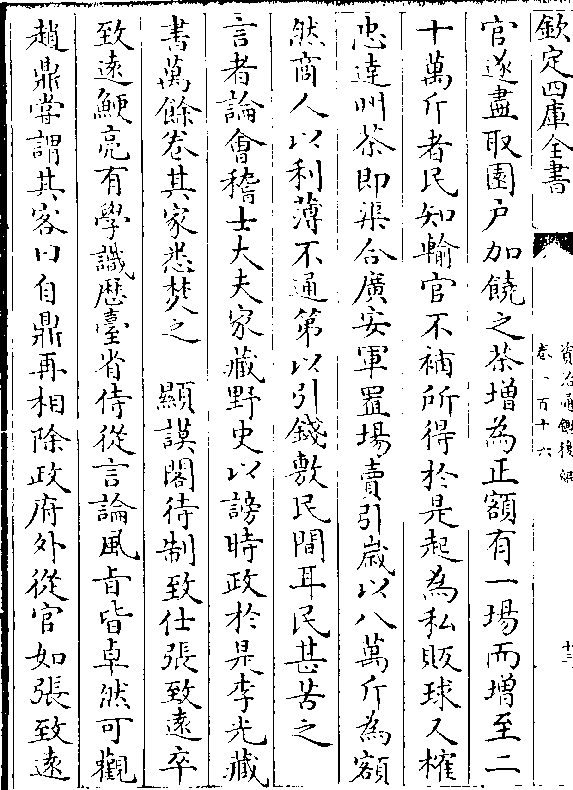 欽定四庫全書
資治通鑑後編
卷一百十六
十二
官遂盡取園户加饒之茶增為正額有一場而增至二
十萬斤者民知輸官不補所得於是起為私販球又榷
忠達州茶即渠合廣安軍置場賣引嵗以八萬斤為額
然商人以利薄不通第以引錢敷民間耳民甚苦之
言者論會稽士大夫家藏野史以謗時政於是李光藏
書萬餘卷其家悉焚之　顯謨閣待制致仕張致遠卒
致遠鯁亮有學識歴臺省侍從言論風㫖皆卓然可觀
趙鼎嘗謂其客曰自鼎再相除政府外從官如張致遠